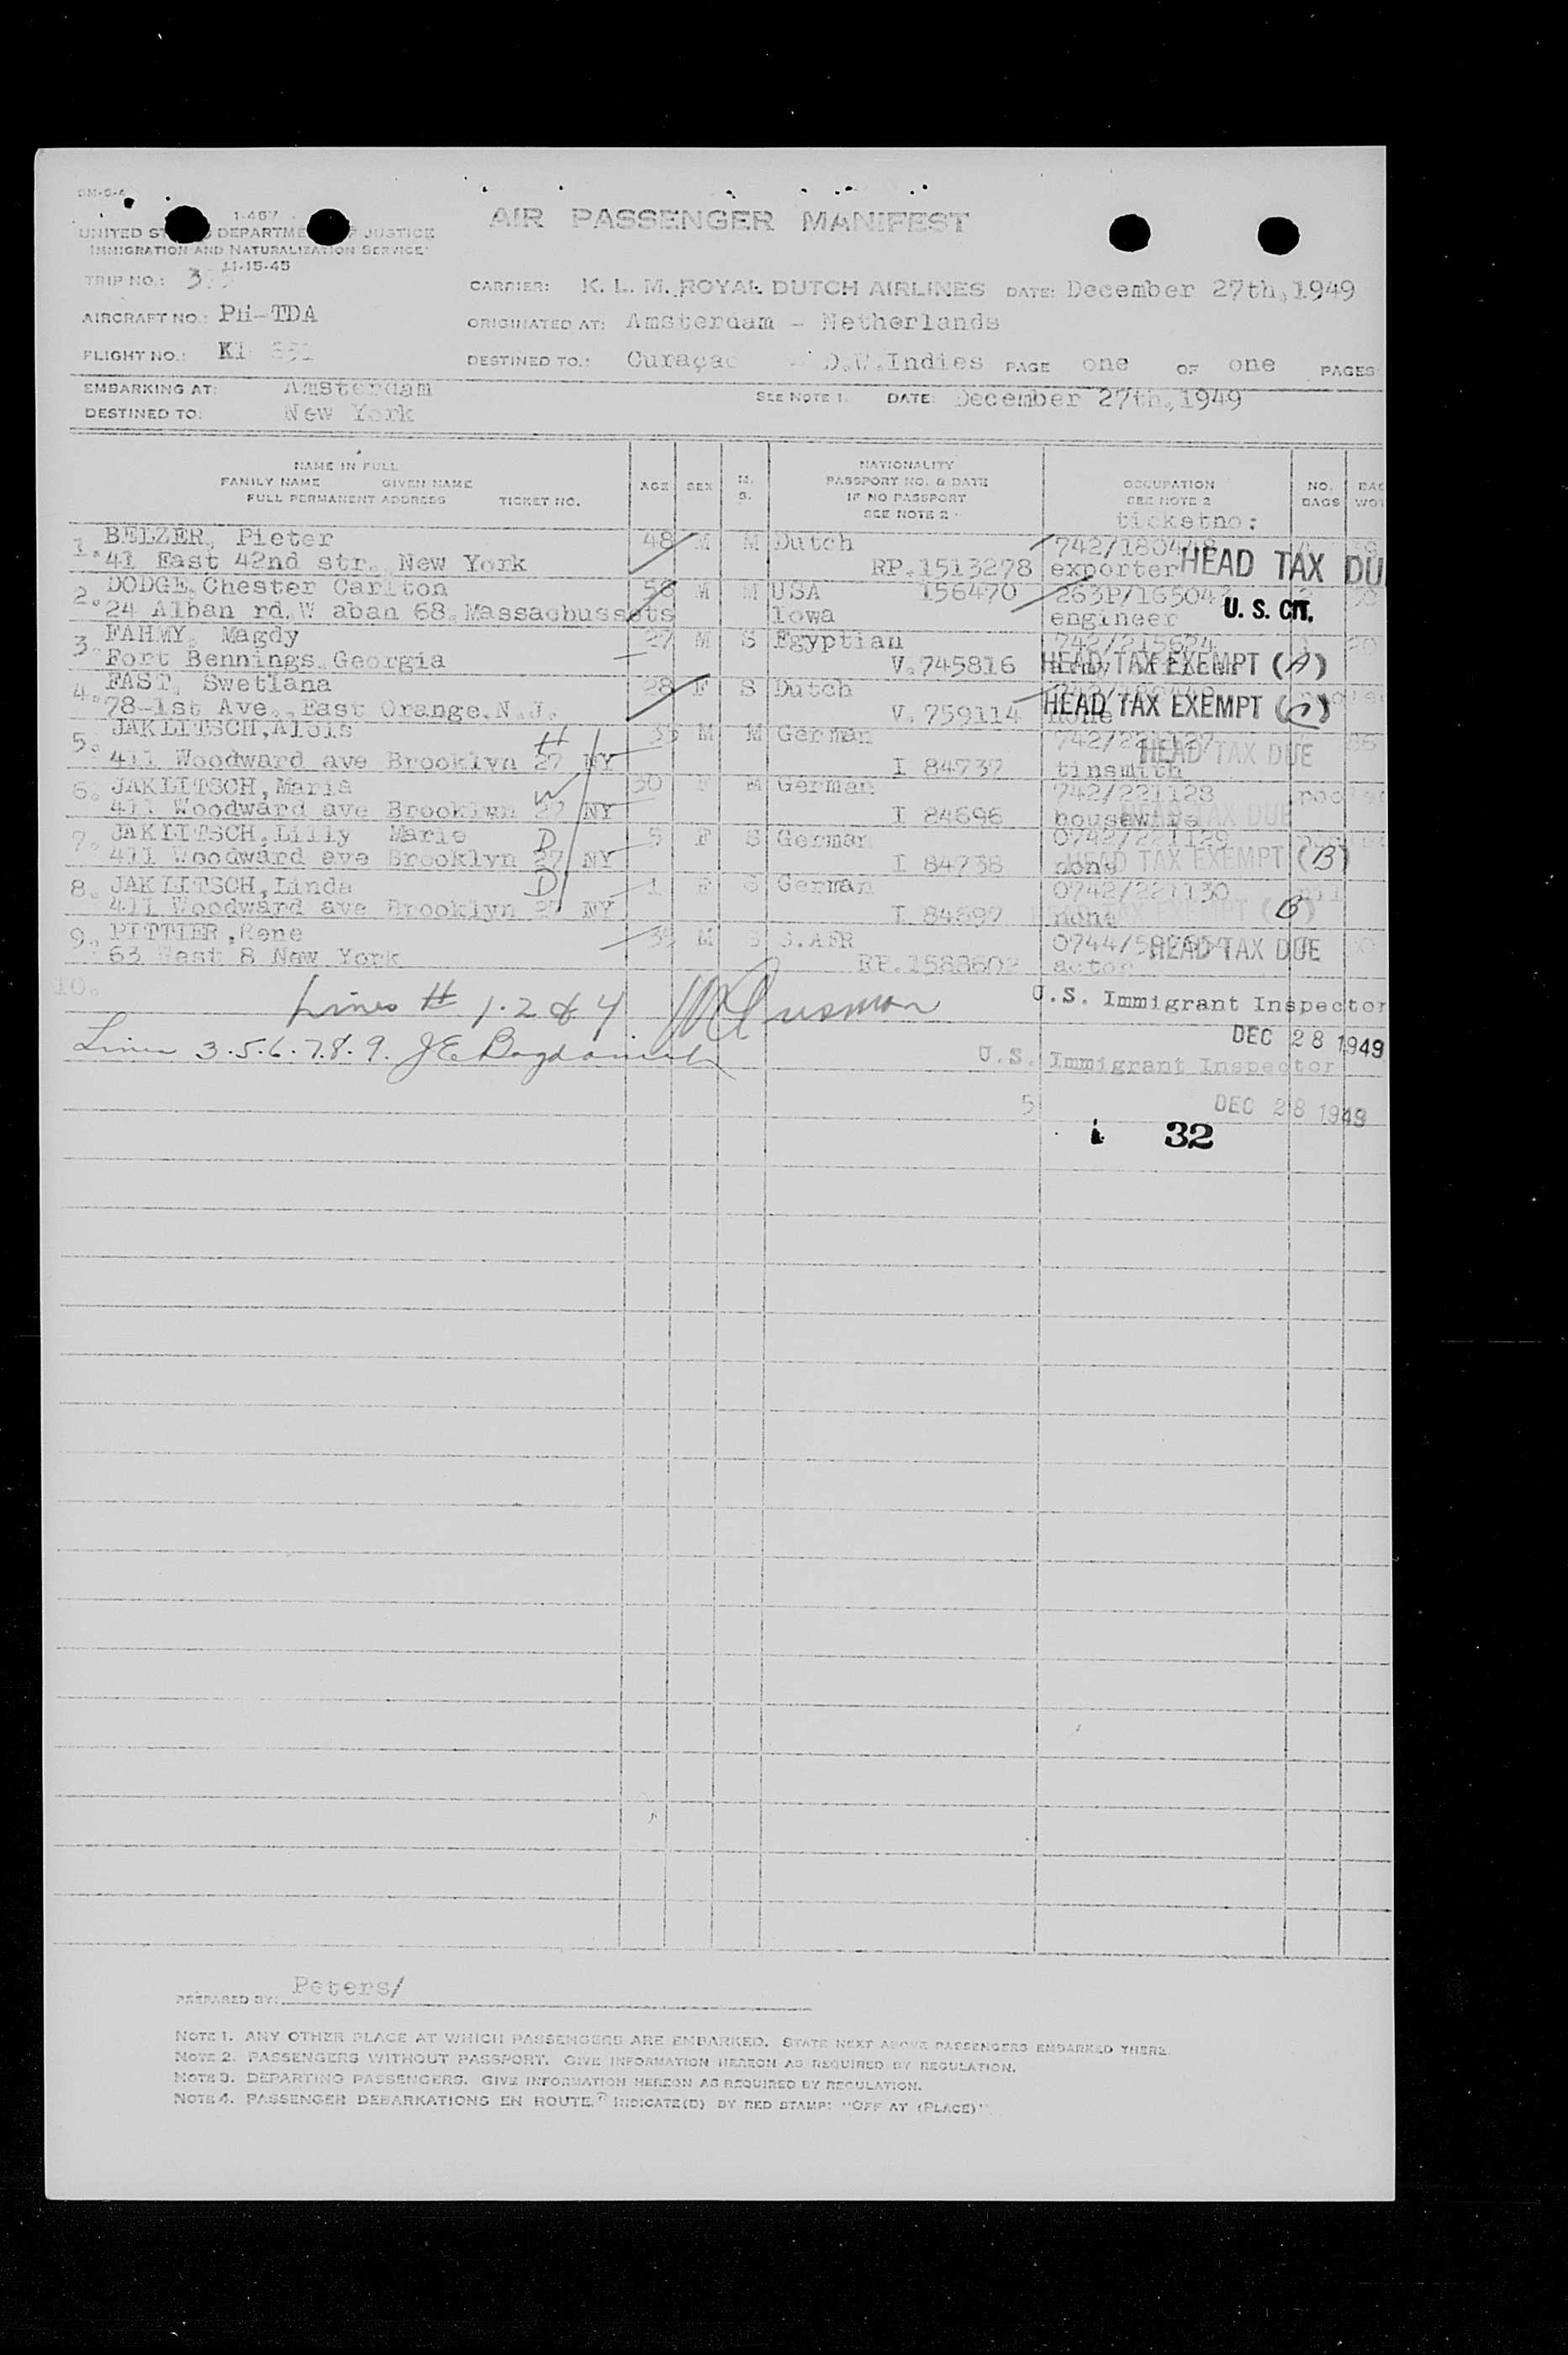 AIR PASSENGER MANIFEST
I-467
UNITED DEPARTME JUSTICE
IMMIGRATION AND NATURALIZATION SERVICE
11-15-45
TRIP NO.:
CARRIER: K. L. M. ROYAL DUTCH AIRLINES DATE: December 27th,1949
AIRCRAFT NO.: PH-TDA
ORIGINATED AT: Amsterdam - Netherlands
FLIGHT NO.:
DESTINED TO.: Curaçao D.W.Indies PAGE one OF one PAGES
EMBARKING AT: Amsterdam
SEE NOTE 1. DATE: December 27th,1949
DESTINED TO: New York
NAME IN FULL
FAMILY NAME GIVEN NAME
FULL PERMANENT ADDRESS TICKET NO.
AGE SEX M. S.
NATIONALITY
PASSPORT NO. & DATE
IF NO PASSPORT
SEE NOTE 2
OCCUPATION
SEE NOTE 2
ticketno:
NO. BAGS
1. BELZER, Pieter 48 M M Dutch 742/180448
41 East 42nd str. New York RP.1513278 exporter HEAD TAX DU
2. DODGE, Chester Carlton 58 M M USA 156470
24 Alban rd. W aban 68. Massachussets Iowa engineer U. S. CIT.
3. FAHMY, Magdy 27 M S Egyptian
Fort Bennings, Georgia V.745816 HEAD TAX EXEMPT (A)
4. FAST, Swetlana 28 F S Dutch
78-1st Ave., East Orange. N.J. V.759114 none HEAD TAX EXEMPT
5. JAKLITSCH, Alois H 35 M M German 742/221127
411 Woodward ave Brooklyn 27 NY I 84737 tinsmith HEAD TAX DUE
6. JAKLITSCH, Maria W 30 F M German 742/221128
411 Woodward ave Brooklyn 27 NY I 84696 housewife HEAD TAX DUE
7. JAKLITSCH, Lilly Marie D 5 F S German 0742/221129
411 Woodward ave Brooklyn 27 NY I 84738 none HEAD TAX EXEMPT (B)
8. JAKLITSCH, Linda D 1 F S German 0742/221130 nil
411 Woodward ave Brooklyn 27 NY I 84697 none HEAD TAX EXEMPT (B)
9. PITTIER, Rene 35 M S S.AFR
63 West 8 New York RP.1588602 actor HEAD TAX DUE
10.
Lines # 1.2 & 4 U.S. Immigrant Inspector
DEC 28 1949
Lines 3.5.6.7.8.9. U.S. Immigrant Inspector
5 DEC 28 1949
32
PREPARED BY: Peters/
NOTE 1. ANY OTHER PLACE AT WHICH PASSENGERS ARE EMBARKED. STATE NEXT ABOVE PASSENGERS EMBARKED THERE.
NOTE 2. PASSENGERS WITHOUT PASSPORT. GIVE INFORMATION HEREON AS REQUIRED BY REGULATION.
NOTE 3. DEPARTING PASSENGERS. GIVE INFORMATION HEREON AS REQUIRED BY REGULATION.
NOTE 4. PASSENGER DEBARKATIONS EN ROUTE. INDICATE(D) BY RED STAMP: "OFF AT (PLACE)"